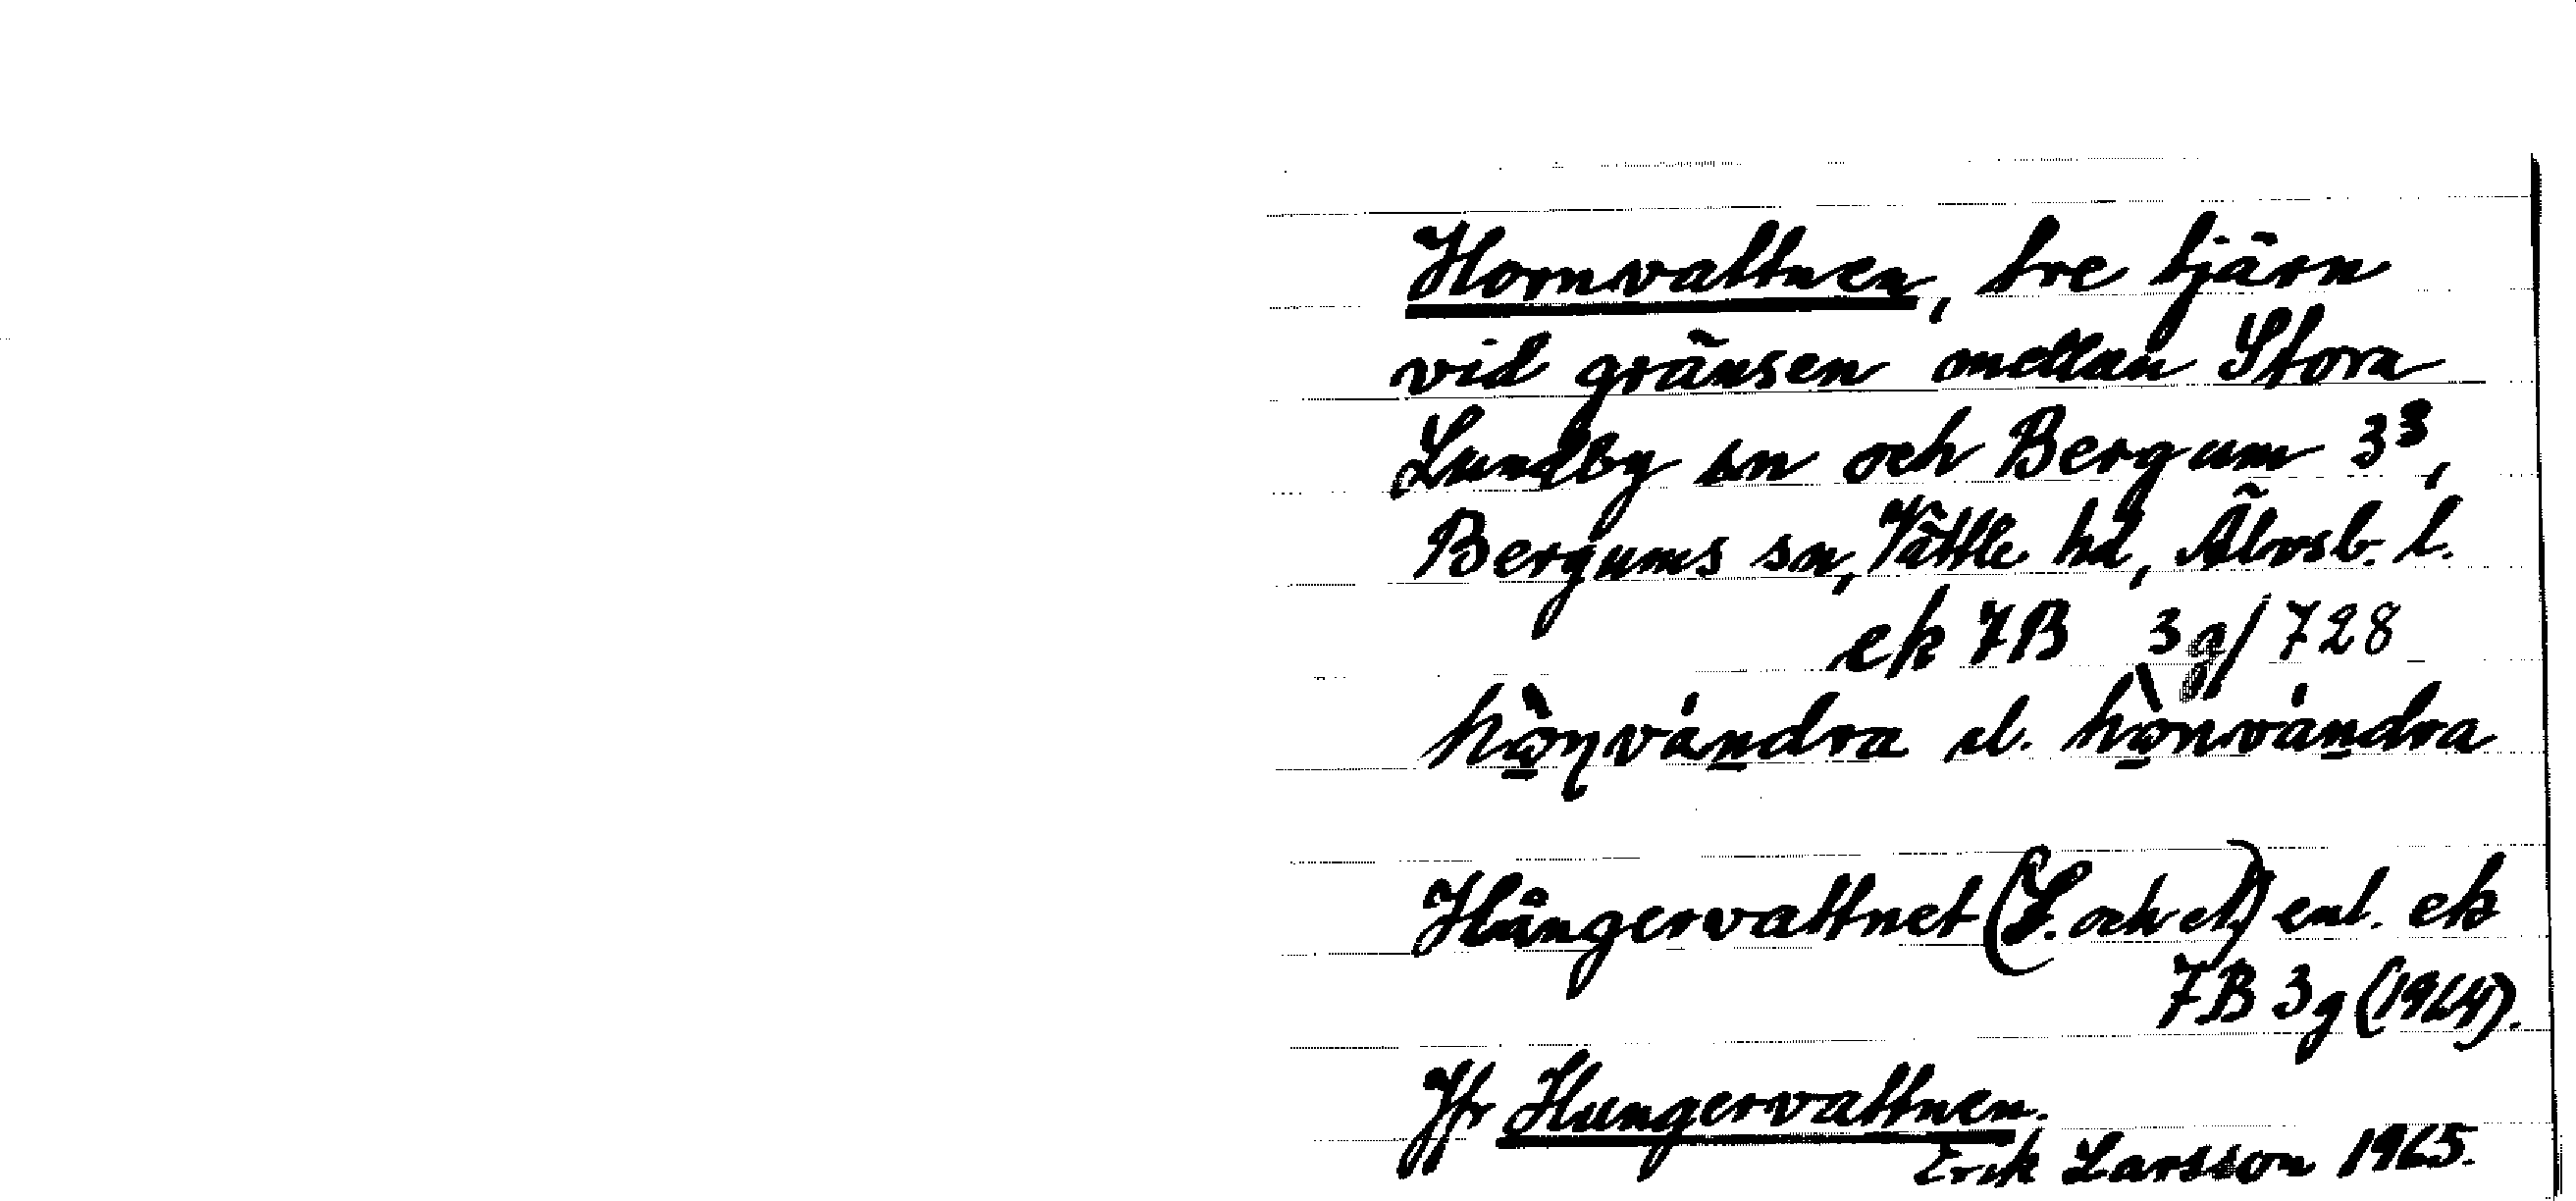 Hornvattnen, tre tjärn
vid gränsen mellan Stora
Lundby sn och Bergum 3³,
Bergums sn, Vättle hd, Älvsb. l.
ek 7B 3g/728
hò̲ŋvȧn̲dra el. hò̲nvȧn̲dra
Hångervattnet (L. och st.) enl. ek
7B 3g (1964).
Jfr Hungervattnen.
Erik Larsson 1965.